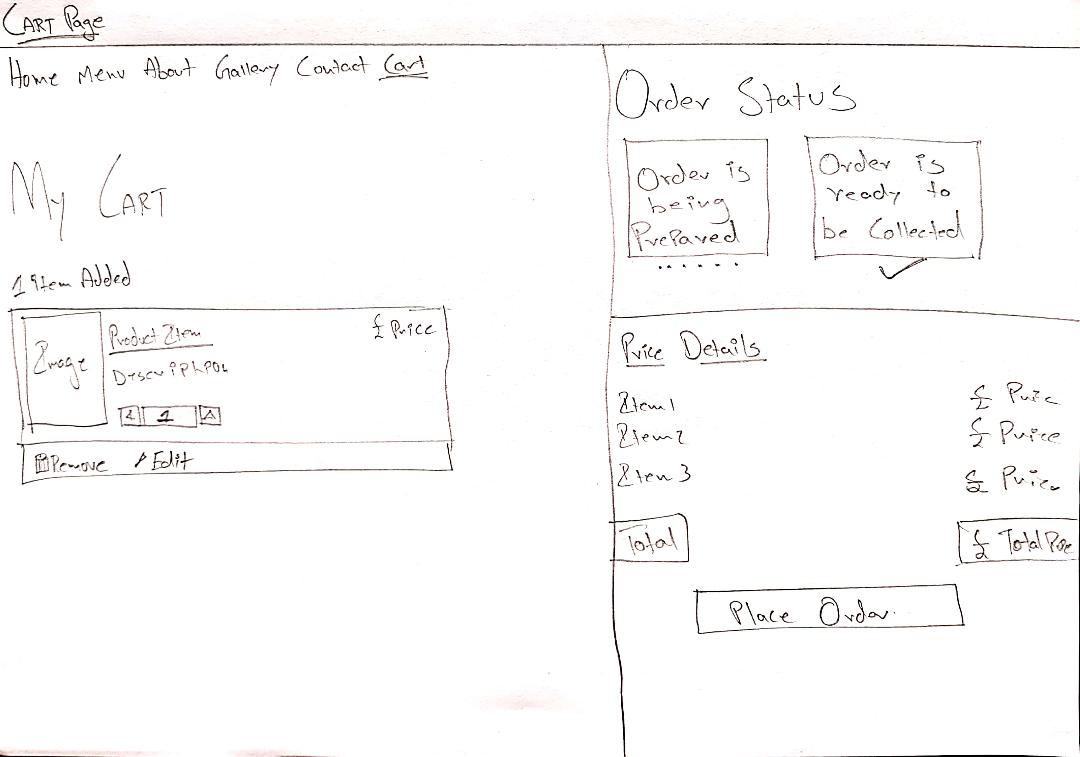 CART Page
Home Menu About Gallery Contact Cart
My CART
1 Item Added
Image
Product Item
£ Price
Description
1
Remove Edit
Order Status
Order is
being
Prepared
Order is
ready to
be Collected
Price Details
Item 1 £ Price
Item 2 £ Price
Item 3 £ Price
Total £ Total
Place Order